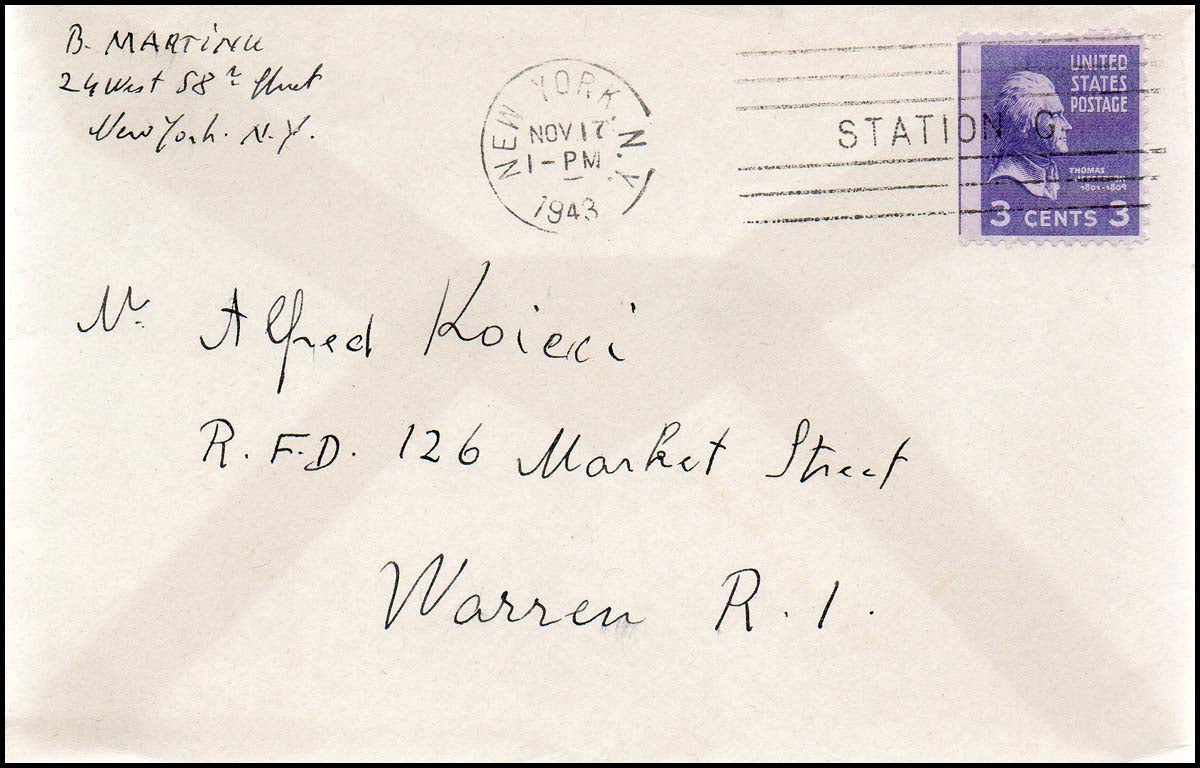 B. MARTINU
24 West 58 Street
New York. N.Y.
NEW YORK, N.Y.
NOV 17
1-PM
1943
STATION G.
UNITED
STATES
POSTAGE
THOMAS
JEFFERSON
1801-1809
3 CENTS 3
Mr. Alfred
R.F.D. 126 Market Street
Warren R.I.